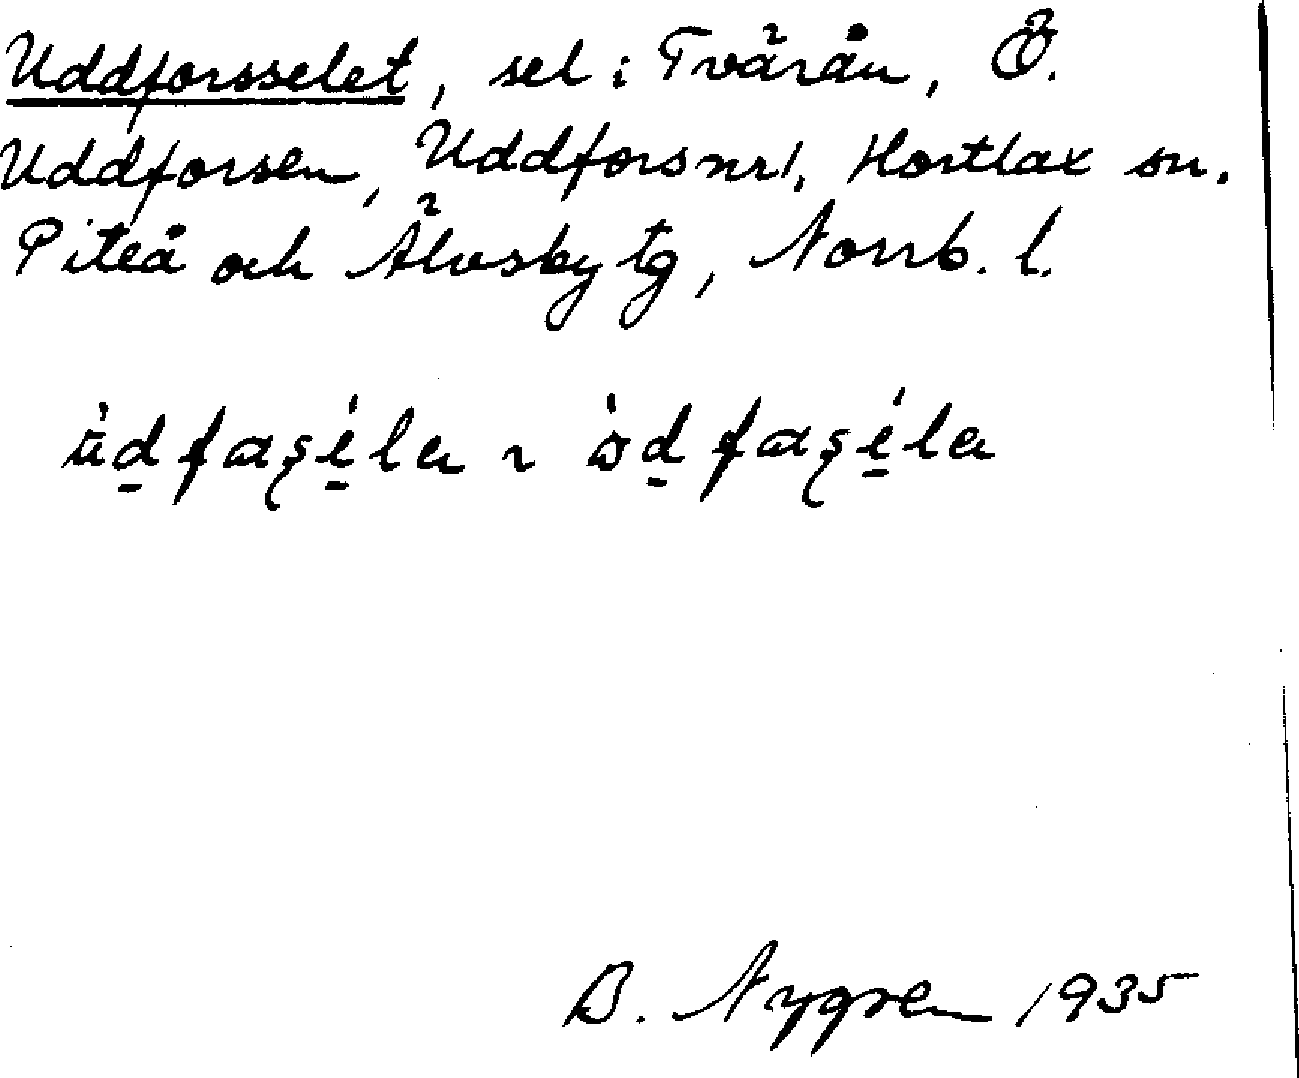 Uddforsselet, sel i Tvärån, Ö.
Uddforsen, Uddforsnr 1, Hortlax sn.
Piteå och Älvsby tg, Norrb. l.
ù̈d̠faʂé̠la ~ òd̠faʂé̠la
B. Nygren 1935